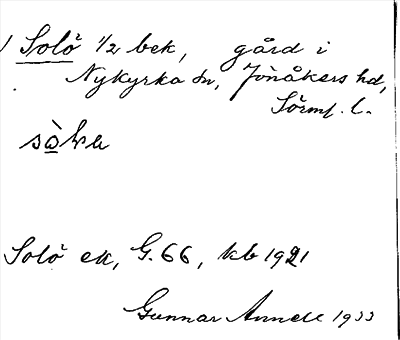 Solö 1/2 bek, gård i
Nykyrka sn, Jönåkers hd,
Sörml. l.
Solö ek, G. 66, kb 1921
Gunnar Annell 1933